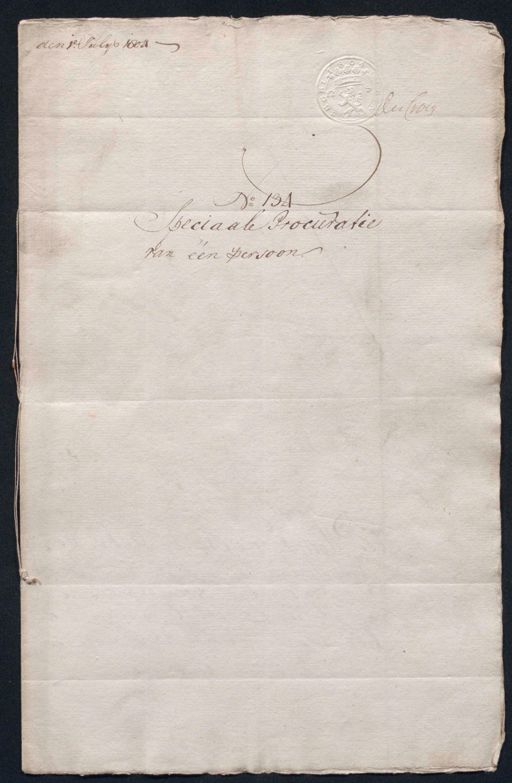 den 1e July 1804
No 134
Speciaale Procuratie
van één persoon